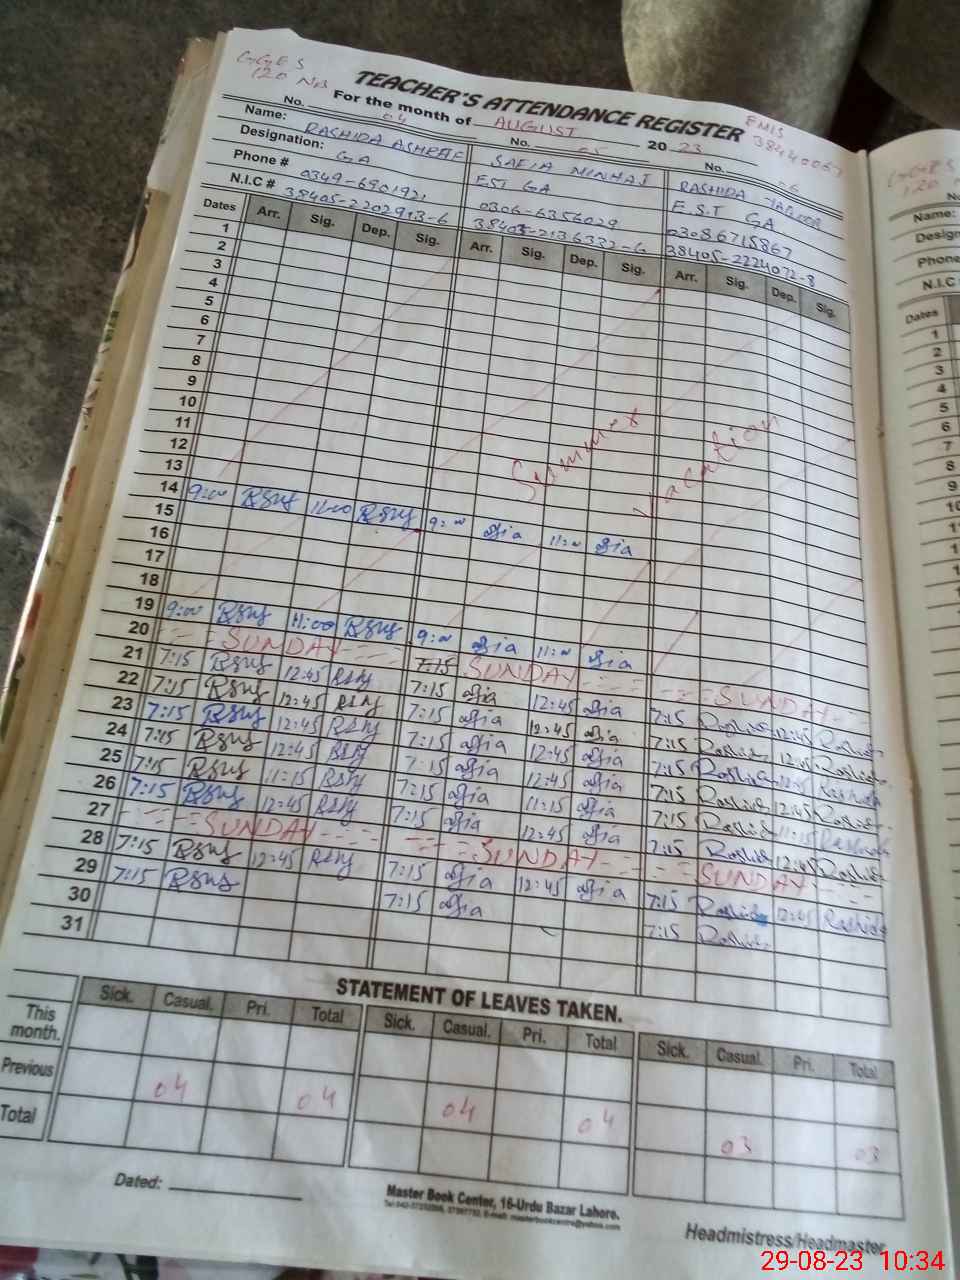 GGES
120 NB
TEACHER'S ATTENDANCE REGISTER
For the month of AUGUST 20 23
EMIS
38440067
No. 04 No. 05 No. 06
Name: RASHIDA ASHRAF SAFIA MINHAJ RASHIDA
Designation: GA EST GA E.S.T GA
Phone # 0349-6901921 0306-6356029 03086715867
N.I.C # 38405-2202913-6 38403-2136332-6 38405-2224072-8
Dates Arr. Sig. Dep. Sig. Arr. Sig. Dep. Sig. Arr. Sig. Dep. Sig.
1
2
3
4
5
6
7
8
9
10
11
12
13
Summer Vacation
14 9:00 11:00 9:00 11:00
15
16
17
18
19 9:00 11:00 9:00 11:00
20 SUNDAY SUNDAY SUNDAY
21 7:15 12:45 7:15 12:45 7:15 12:45
22 7:15 12:45 7:15 12:45 7:15 12:45
23 7:15 12:45 7:15 12:45 7:15 12:45
24 7:15 12:45 7:15 12:45 7:15 12:45
25 7:15 11:15 7:15 11:15 7:15 11:15
26 7:15 12:45 7:15 12:45 7:15 12:45
27 SUNDAY SUNDAY SUNDAY
28 7:15 12:45 7:15 12:45 7:15 12:45 Rashida
29 7:15 7:15 7:15
30
31
STATEMENT OF LEAVES TAKEN.
Sick. Casual. Pri. Total Sick. Casual. Pri. Total Sick. Casual. Pri. Total
This month.
Previous 04 04 04 04 03 03
Total
Dated:
Master Book Center, 16-Urdu Bazar Lahore.
Headmistress/Headmaster
GGES
120
Name:
Phone
N.I.C
Dates
1
2
3
4
5
6
7
8
9
10
29-08-23 10:34